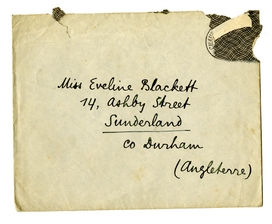 Miss Eveline Blackett
14, Ashby Street
Sunderland
Co Durham
(Angleterre)